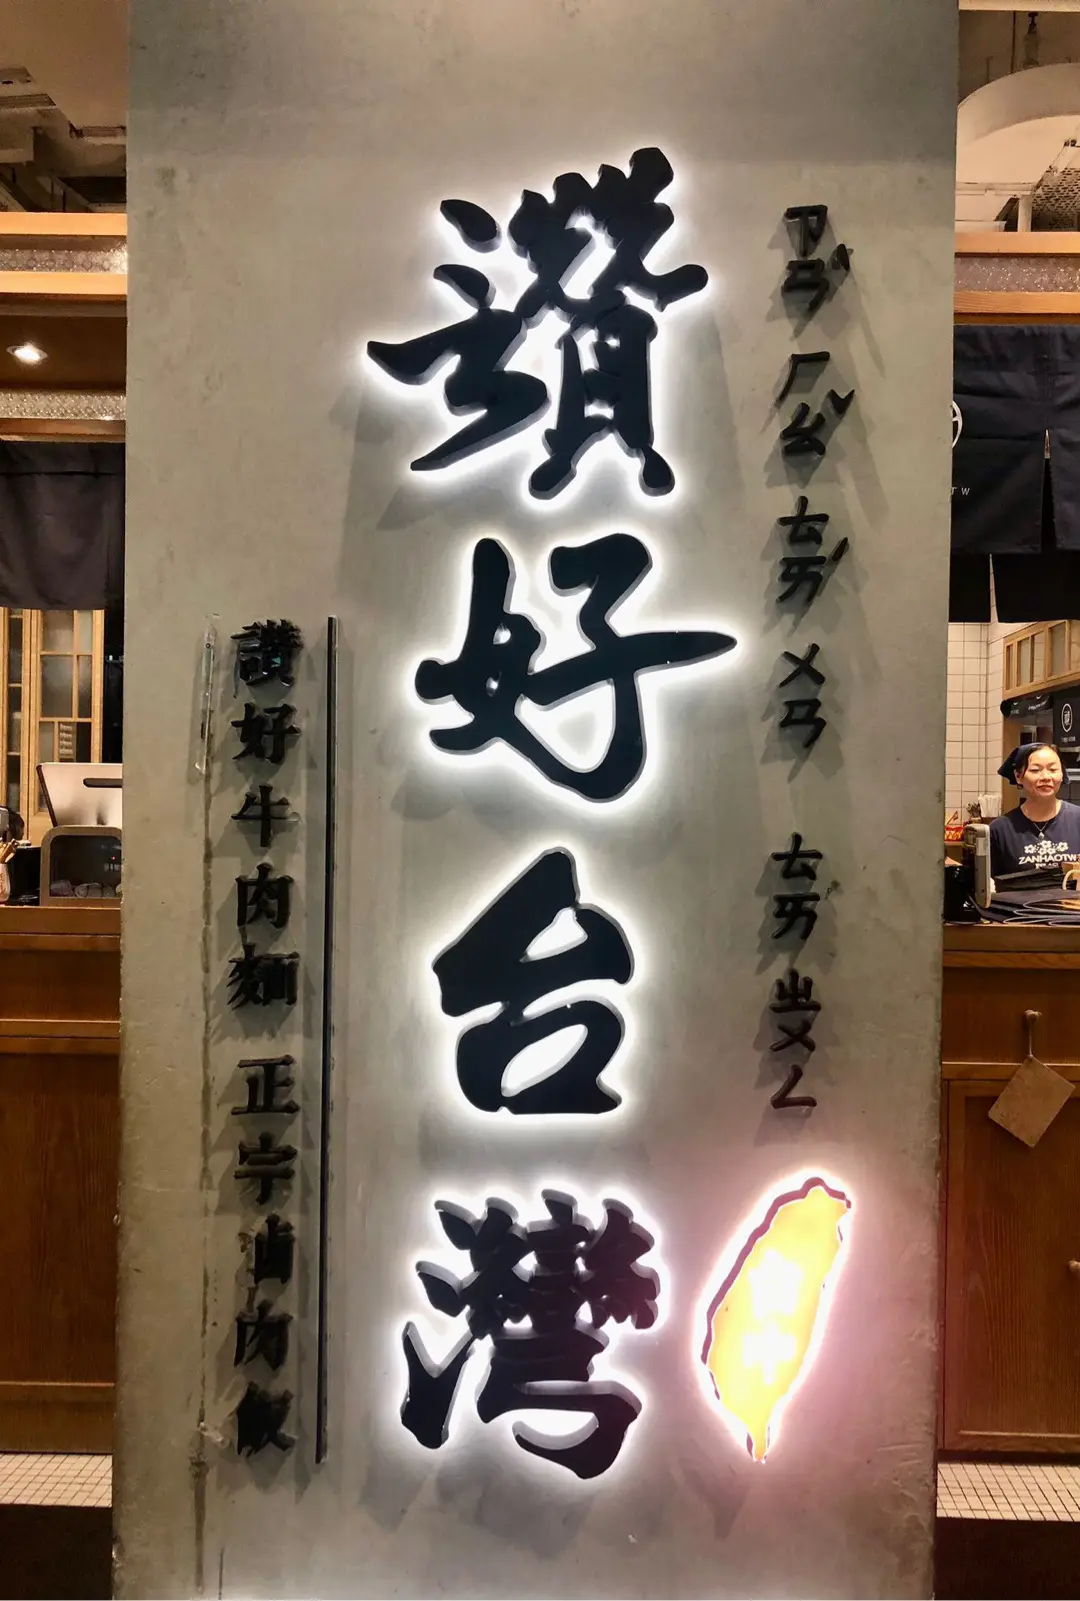 ㄗㄢˋ ㄏㄠˇ ㄊㄞˊ ㄨㄢ ㄊㄞ ㄓㄨㄥ
讚好台灣
讚好牛肉麵 正宗滷肉飯
ZANHAOTW